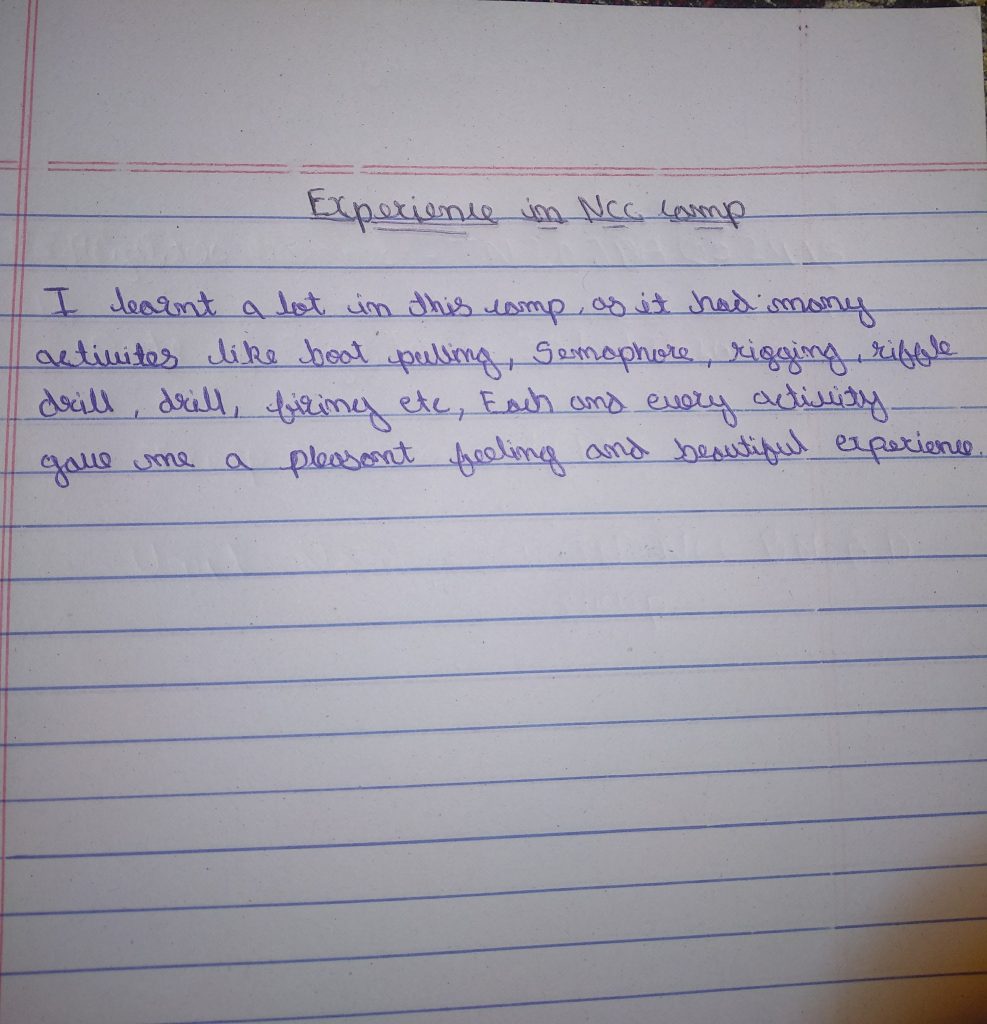 Experience in NCC camp
I learnt a lot in this camp, as it had many
activites like boat pulling, Semaphore, rigging, riffle
drill, drill, firing etc, Each and every activity
gave me a pleasant feeling and beautiful experience.